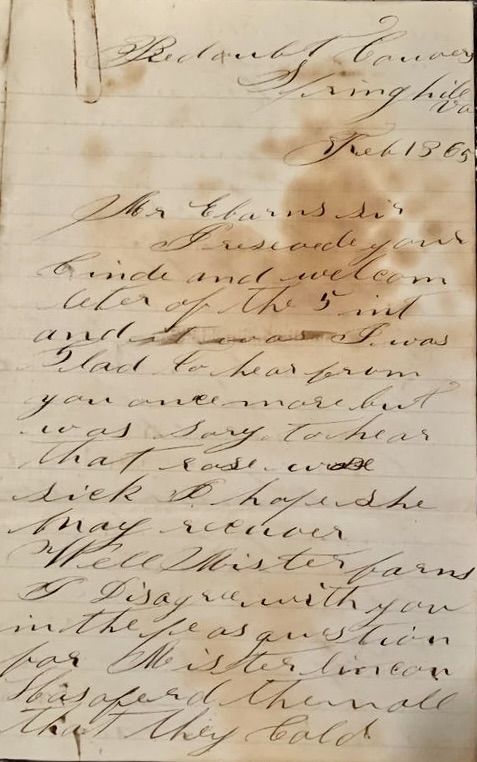 Redoubt Convers
Spring hill
Va
Feb 1865
Mr Ebarns sir
I reseved your
Cinde and welcom
leter of the 5 int
and it was I was
Glad to hear from
you once more but
was sory to hear
that rose was
sick I hope she
may recuver
Well Mister barns
I Disagre with you
in the peas question
for Mister lincon
Has oferd them all
that they Cold